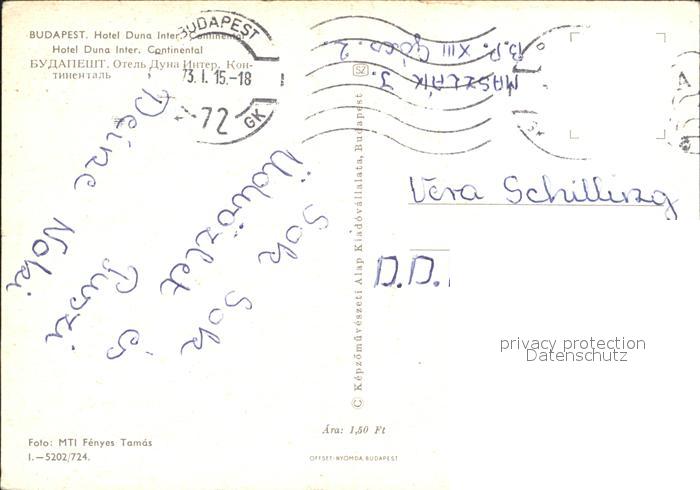 BUDAPEST. Hotel Duna Inter. Continental
Hotel Duna Inter. Continental
БУДАПЕШТ. Отель Дуна Интер. Кон-
тиненталь
BUDAPEST
73. I. 15.–18
72
GK
MASZLÁK J.
B.P. XIII
2.
Sok Sok
Üdvözlet és
Puszi
Deine Noki
SZ
© Képzőművészeti Alap Kiadóvállalata, Budapest
Vera Schilling
D.D.
privacy protection
Datenschutz
Ára: 1,50 Ft
Foto: MTI Fényes Tamás
I.—5202/724.
OFFSET-NYOMDA, BUDAPEST